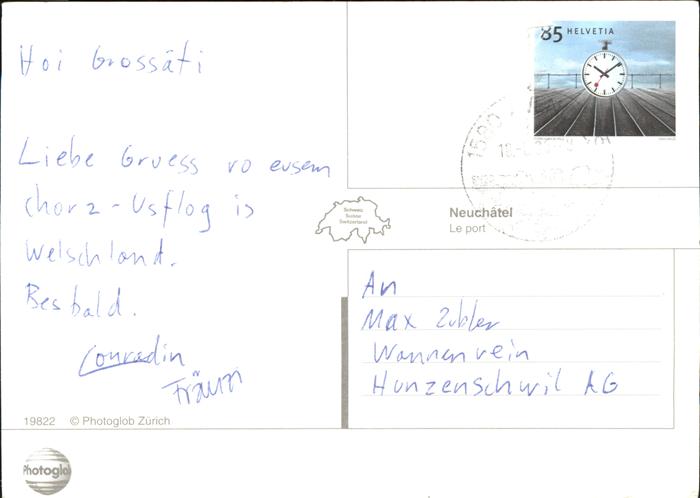 Hoi Grossäti
Liebe Gruess vo eusem
churz-Usflog is
Welschland.
Bes bald.
Conradin
85 HELVETIA
1580
Schweiz
Suisse
Switzerland
Neuchâtel
Le port
An
Max Zubler
Wannenrein
Hunzenschwil AG
19822 © Photoglob Zürich
Photoglob